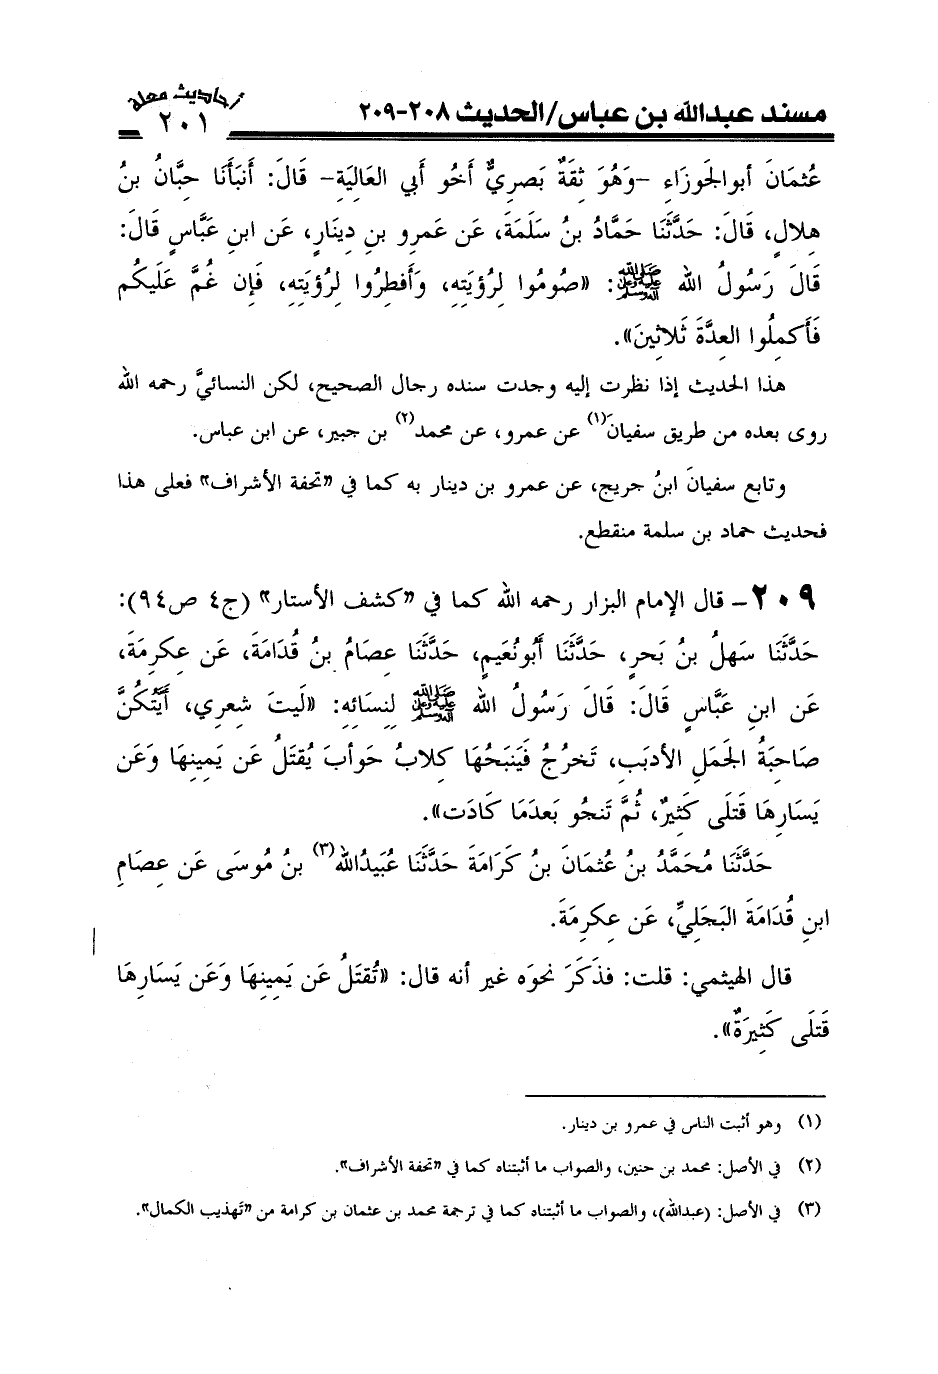 أحاديث معلة
٢٠١
مسند عبدالله بن عباس/الحديث ٢٠٨-٢٠٩
عُثمَانَ أبوالجَوزَاءِ -وَهُوَ ثِقَةٌ بَصرِيٌّ أَخُو أَبي العَالِيَةِ- قَالَ: أَنبَأَنَا حِبَّانُ بنُ
هِلالٍ، قَالَ: حَدَّثَنَا حَمَّادُ بنُ سَلَمَةَ، عَن عَمرِو بنِ دِينَارٍ، عَن ابنِ عَبَّاسٍ قَالَ:
قَالَ رَسُولُ الله ﷺ: «صُومُوا لِرُؤيَتِهِ، وَأَفطِرُوا لِرُؤيَتِهِ، فَإِن غُمَّ عَلَيكُم
فَأَكمِلُوا العِدَّةَ ثَلاثِينَ».
هذا الحديث إذا نظرت إليه وجدت سنده رجال الصحيح، لكن النسائيَّ رحمه الله
روى بعده من طريق سفيانَ(١) عن عمرو، عن محمد(٢) بن جبير، عن ابن عباس.
وتابع سفيانَ ابنُ جريج، عن عمرو بن دينار به كما في «تحفة الأشراف» فعلى هذا
فحديث حماد بن سلمة منقطع.
٢٠٩- قال الإمام البزار رحمه الله كما في «كشف الأستار» (ج٤ ص٩٤):
حَدَّثَنَا سَهلُ بنُ بَحرٍ، حَدَّثَنَا أَبُونُعَيمٍ، حَدَّثَنَا عِصَامُ بنُ قُدَامَةَ، عَن عِكرِمَةَ،
عَن ابنِ عَبَّاسٍ قَالَ: قَالَ رَسُولُ الله ﷺ لِنِسَائِهِ: «لَيتَ شِعرِي، أَيَّتُكُنَّ
صَاحِبَةُ الجَمَلِ الأَدبَبِ، تَخرُجُ فَيَنبَحُهَا كِلابُ حَوأَبَ يُقتَلُ عَن يَمِينِهَا وَعَن
يَسَارِهَا قَتلَى كَثِيرٌ، ثُمَّ تَنجُو بَعدَمَا كَادَت».
حَدَّثَنَا مُحَمَّدُ بنُ عُثمَانَ بنُ كَرَامَةَ حَدَّثَنَا عُبَيدُالله(٣) بنُ مُوسَى عَن عِصَامِ
ابنِ قُدَامَةَ البَجَلِيِّ، عَن عِكرِمَةَ.
قال الهيثمي: قلت: فَذَكَرَ نحوَه غير أنه قال: «تُقتَلُ عَن يَمِينِهَا وَعَن يَسَارِهَا
قَتلَى كَثِيرَةٌ».
(١) وهو أثبت الناس في عمرو بن دينار.
(٢) في الأصل: محمد بن حنين، والصواب ما أثبتناه كما في «تحفة الأشراف».
(٣) في الأصل: (عبدالله)، والصواب ما أثبتناه كما في ترجمة محمد بن عثمان بن كرامة من «تهذيب الكمال».